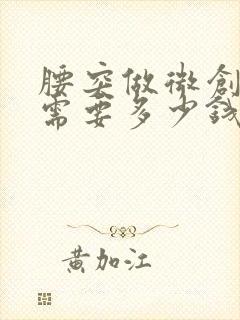 腰突做微創
需要多少錢
黄加江